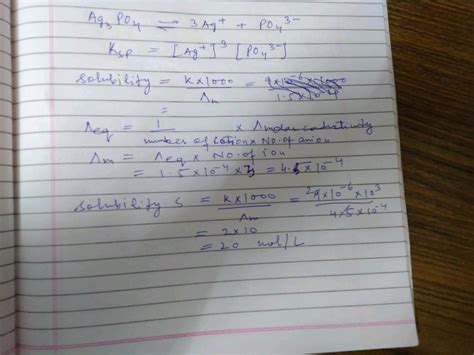 Ag3PO4 ⇌ 3Ag+ + PO4 3-
Ksp = [Ag+]^3 [PO4^3-]
Solubility = K×1000 / Λm = 9×10^-6 × 1000 / 1.5×10^-4
=
Λeq = 1 / number of cation × No. of anion × Λ molar conductivity
Λm = Λeq × No. of ion
= 1.5×10^-4 × 3 = 4.5×10^-4
Solubility S = K×1000 / Λm = 9×10^-6 × 10^3 / 4.5×10^-4
= 2×10
= 20 mol/L